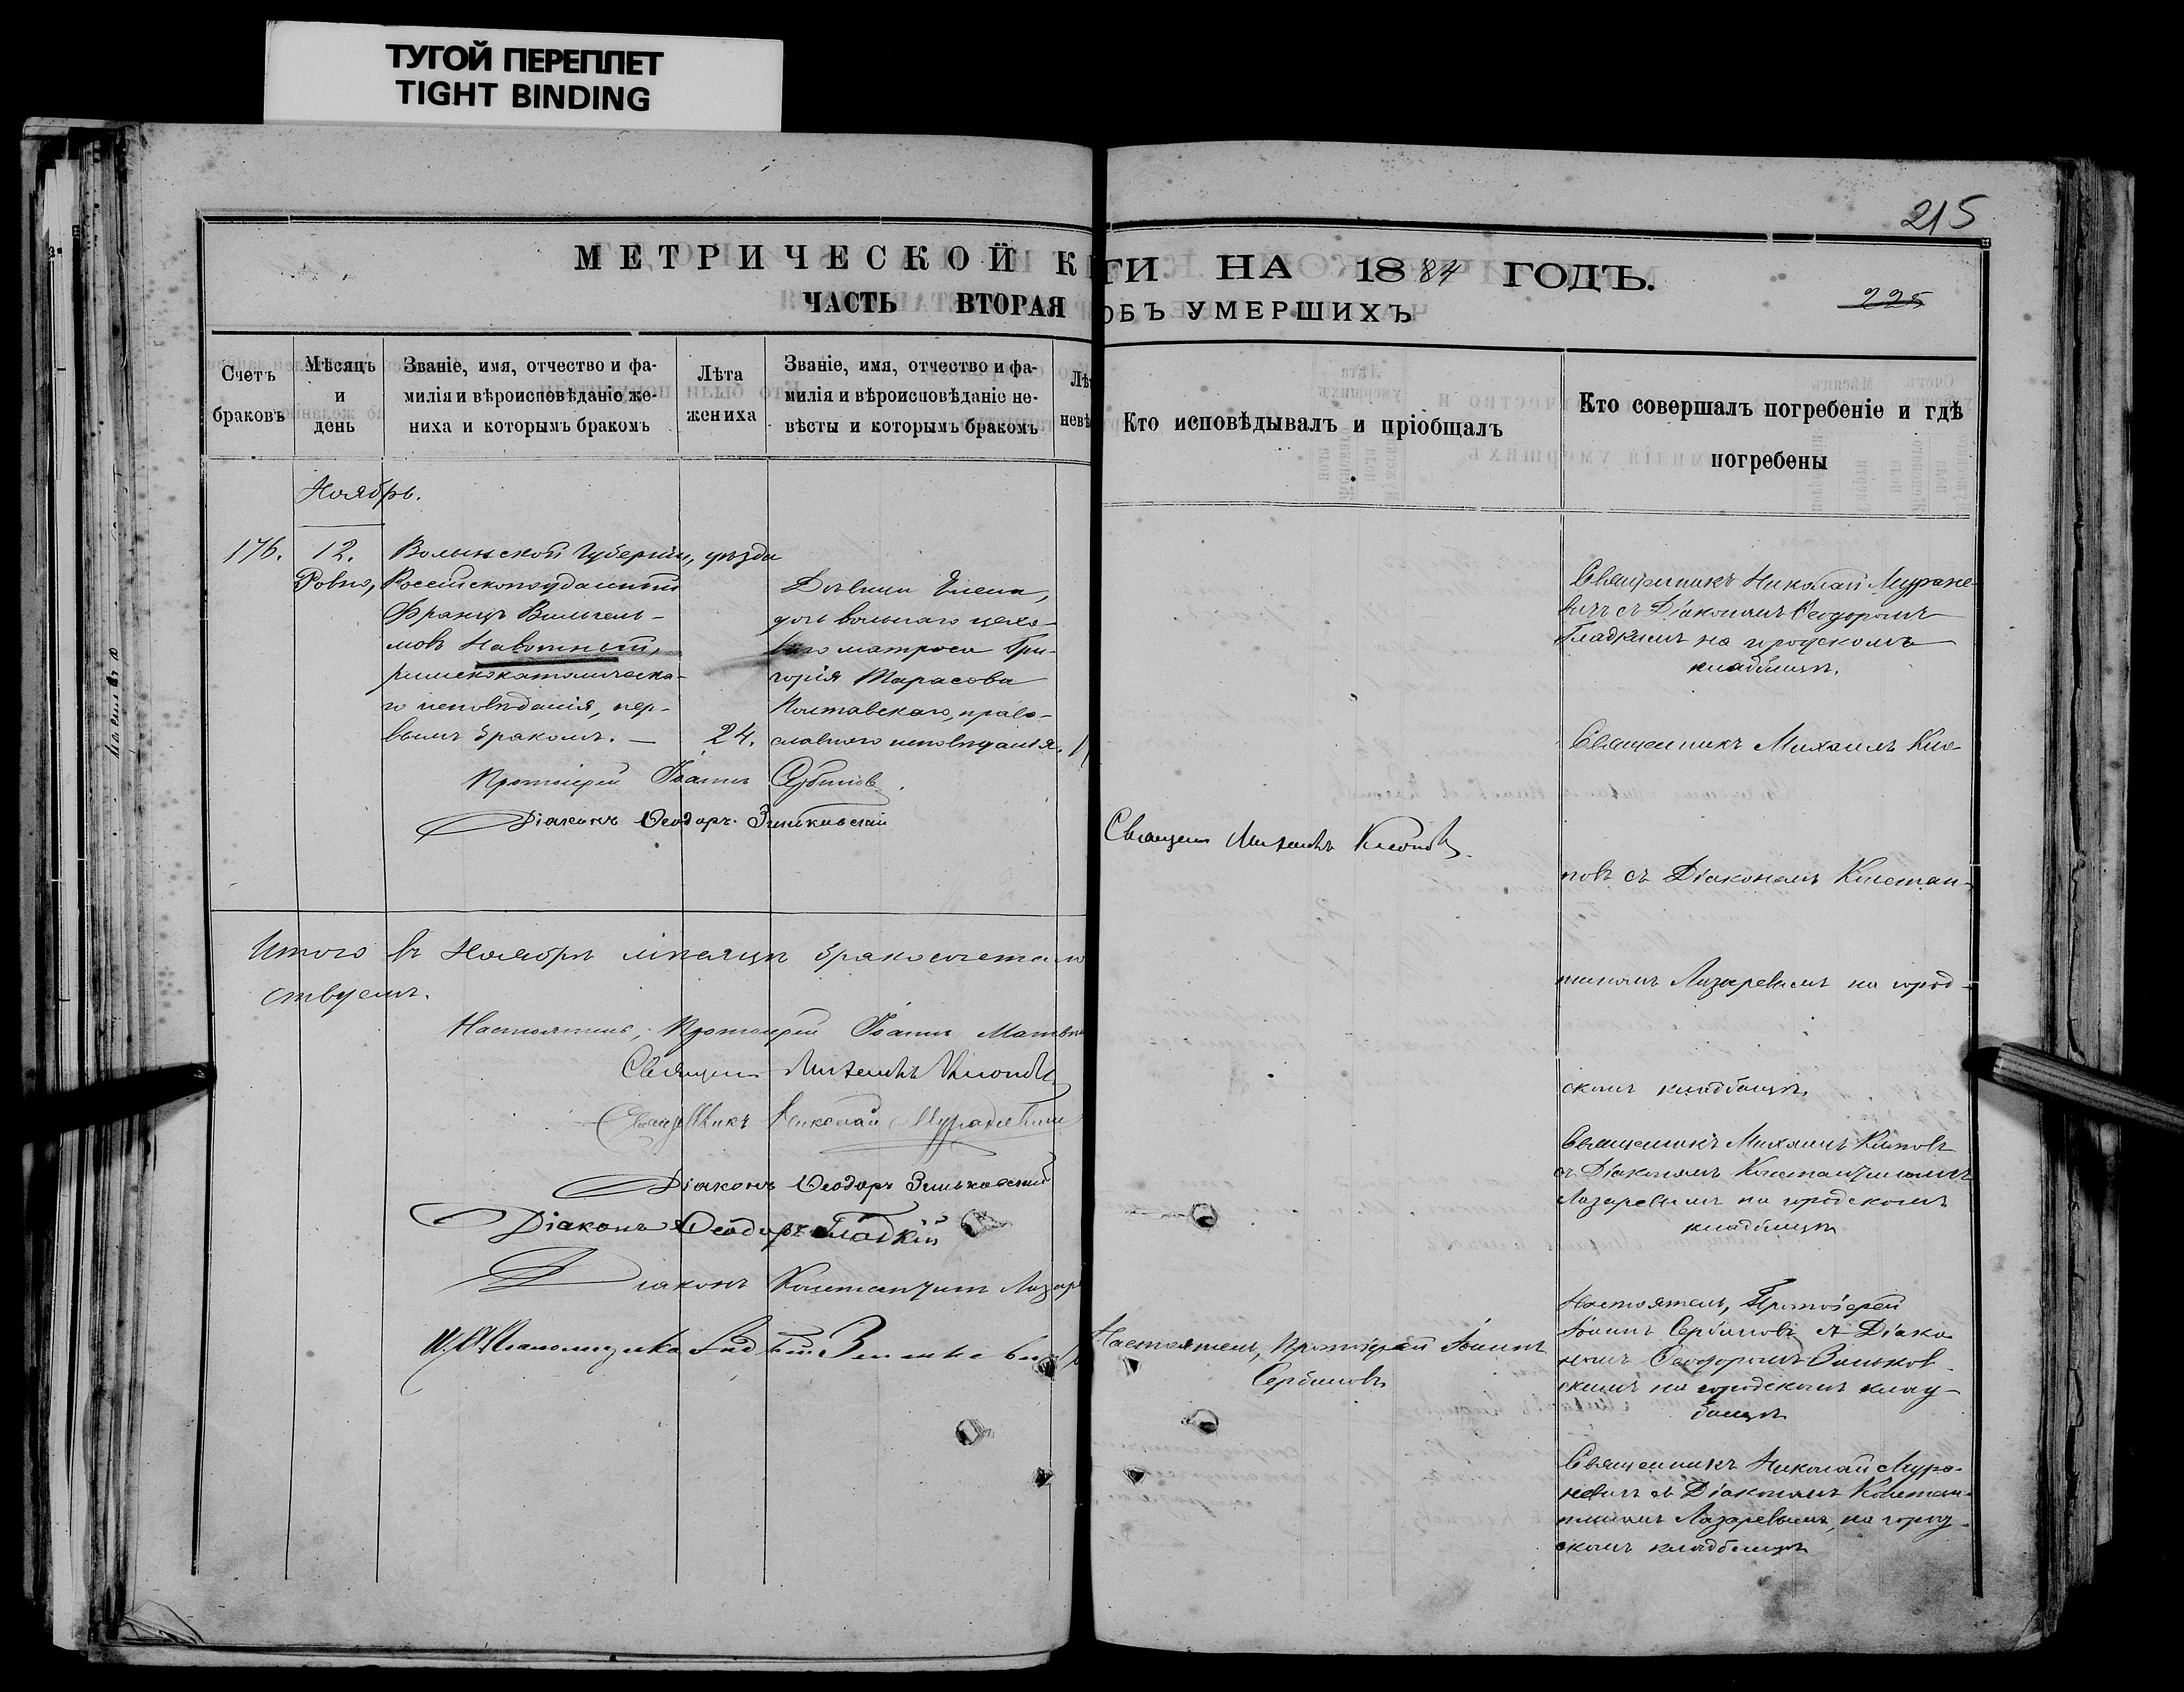 ТУГОЙ ПЕРЕПЛЕТ
TIGHT BINDING
МЕТРИЧЕСКОЙ К
ЧАСТЬ ВТОРАЯ
Счетъ браковъ
Мѣсяцъ и день
Званіе, имя, отчество и фа-
милія и вѣроисповѣданіе же-
ниха и которымъ бракомъ
Лѣта
жениха
Званіе, имя, отчество и фа-
милія и вѣроисповѣданіе не-
вѣсты и которымъ бракомъ
Лѣт
невѣ
Ноябрь.
176.
12.
Ровно,
Волынской Губерніи, уѣзда
Россійскоподданный
Францъ Вильгель-
мовъ Навотный,
римскокатолическа-
го исповѣданія, пер-
вымъ бракомъ. —
24.
Дѣвица Елена,
дочь вольнаго цехо-
ваго матроса Гри-
горія Тарасова
Полтавскаго, право-
славнаго исповѣданія.
Протоіерей Іоаннъ Сербиновъ.
Діаконъ Ѳеодоръ Зиньковскій
Итого въ Ноябрѣ мѣсяцѣ бракосочетало
ствуемъ.
Настоятель, Протоіерей Іоаннъ
Священ Михаилъ Климовъ
Священникъ Николай Мураневичъ
Діаконъ Ѳеодоръ Зиньковскій
Діаконъ Ѳеодоръ Гладкій
Діаконъ Константинъ Лазар
ГИ НА 1884 ГОДЪ.
ОБЪ УМЕРШИХЪ
215
225
Кто исповѣдывалъ и пріобщалъ
Кто совершалъ погребеніе и гдѣ
погребены
Священникъ Николай Муране-
вичъ съ Діакономъ Ѳеодоромъ
Гладкимъ на городскомъ
кладбищѣ.
Священникъ Михаилъ Кли-
Священ Михаилъ Климовъ.
мовъ съ Діакономъ Констан-
тиномъ Лазаревымъ на город-
скомъ кладбищѣ.
Священникъ Михаилъ Климовъ
съ Діакономъ Константиномъ
Лазаревымъ на городскомъ
кладбищѣ
Настоятель, Протоіерей Іоаннъ
Сербиновъ
Настоятель, Протоіерей
Іоаннъ Сербиновъ съ Діако-
номъ Ѳеодоромъ Зиньков-
скимъ на городскомъ клад-
бищѣ
Священникъ Николай Мура-
невичъ съ Діакономъ Констан-
тиномъ Лазаревымъ, на город-
скомъ кладбищѣ